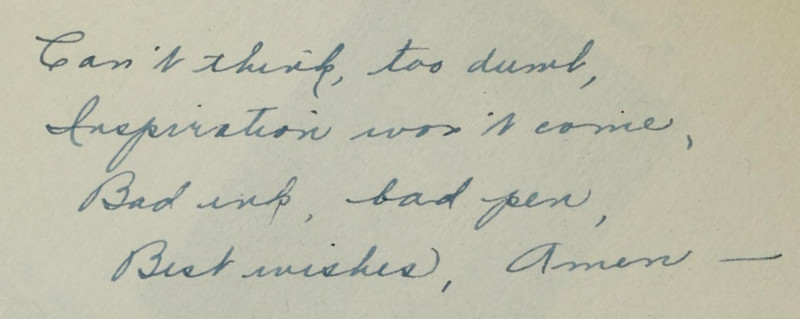 Can't think, too dumb,
Inspiration won't come,
Bad ink, bad pen,
Best wishes, Amen —